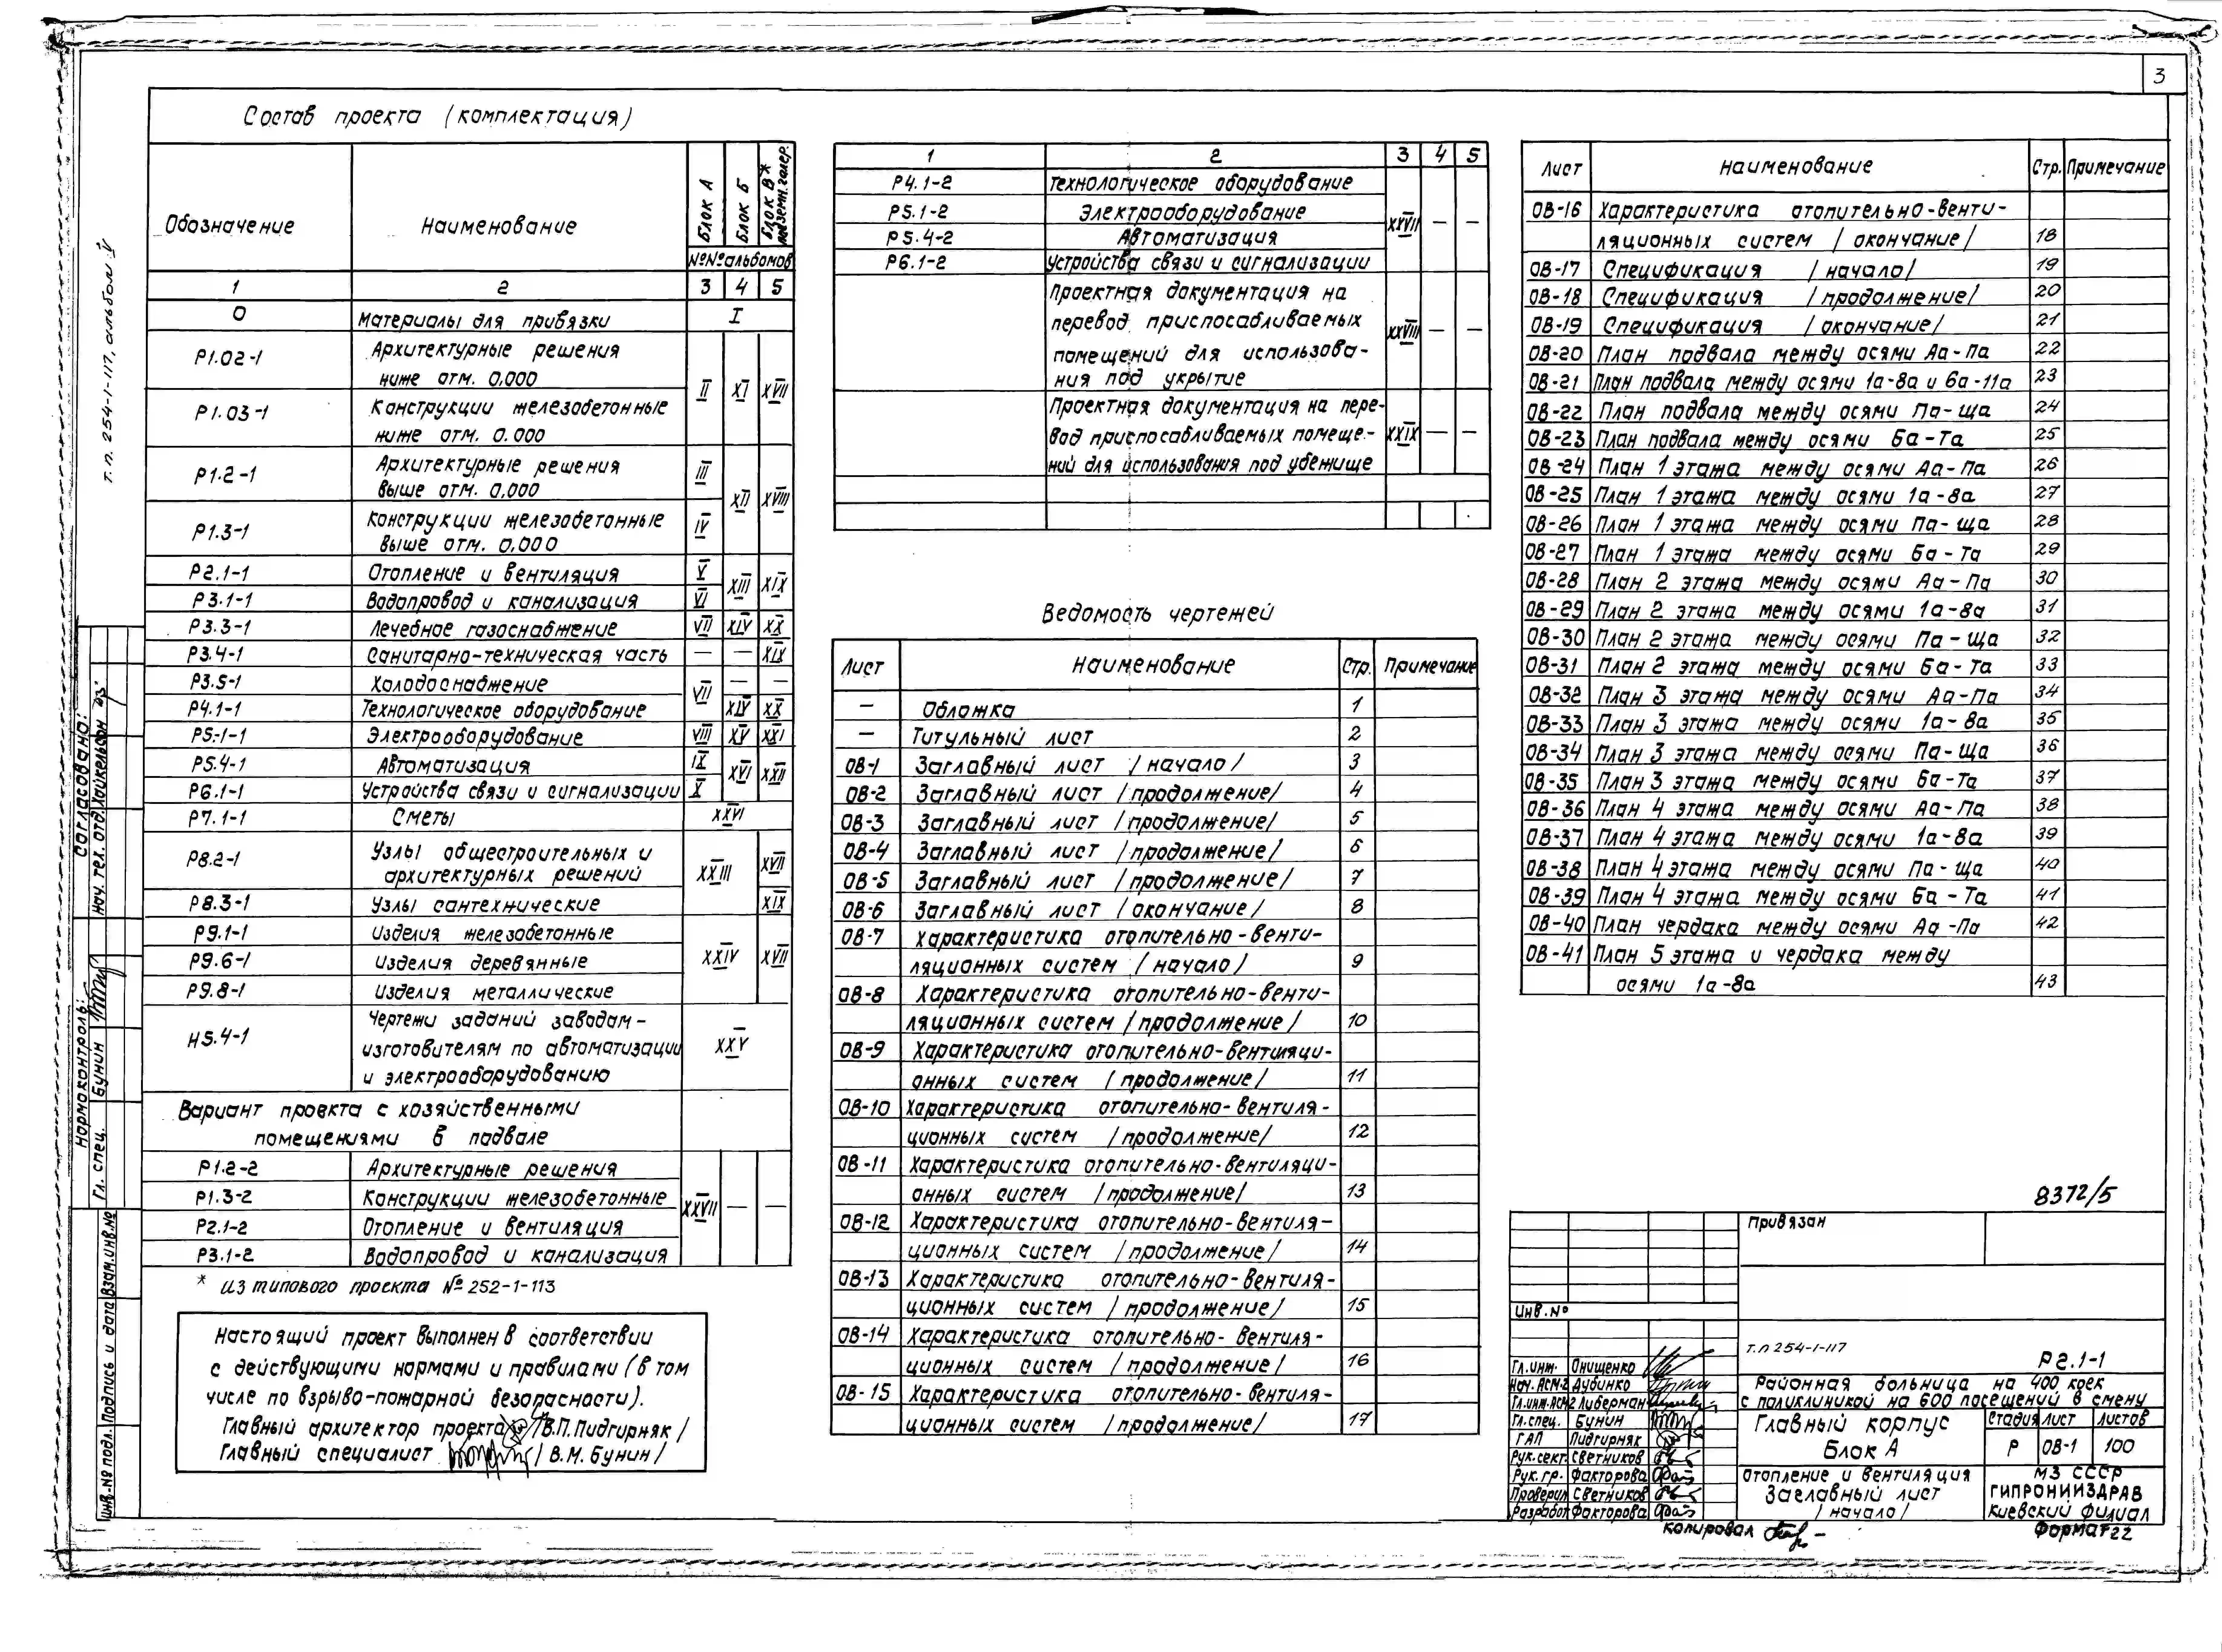 3
т.п. 254-1-117, альбом V
Состав проекта (комплектация)
Обозначение Наименование Блок А Блок Б Блок В* подземн. галер.
№№ альбомов
1 2 3 4 5
0 Материалы для привязки I
Р1.02-1 Архитектурные решения
ниже отм. 0,000 II XI XVII
Р1.03-1 Конструкции железобетонные
ниже отм. 0.000
Р1.2-1 Архитектурные решения III
выше отм. 0,000 XII XVIII
Р1.3-1 Конструкции железобетонные IV
выше отм. 0,000
Р2.1-1 Отопление и вентиляция V XIII XIX
Р3.1-1 Водопровод и канализация VI
Р3.3-1 Лечебное газоснабжение VII XIV XX
Р3.4-1 Санитарно-техническая часть — — XIX
Р3.5-1 Холодоснабжение VII — —
Р4.1-1 Технологическое оборудование XIV XX
Р5-1-1 Электрооборудование VIII XV XXI
Р5.4-1 Автоматизация IX XVI XXII
Р6.1-1 Устройства связи и сигнализации X
Р7.1-1 Сметы XXVI
Р8.2-1 Узлы общестроительных и
архитектурных решений XXIII XVII
Р8.3-1 Узлы сантехнические XIX
Р9.1-1 Изделия железобетонные
Р9.6-1 Изделия деревянные XXIV XVII
Р9.8-1 Изделия металлические
Н5.4-1 Чертежи заданий заводам-
изготовителям по автоматизации XXV
и электрооборудованию
Вариант проекта с хозяйственными
помещениями в подвале
Р1.2-2 Архитектурные решения
Р1.3-2 Конструкции железобетонные XXVII — —
Р2.1-2 Отопление и вентиляция
Р3.1-2 Водопровод и канализация
* Из типового проекта № 252-1-113
Настоящий проект выполнен в соответствии
с действующими нормами и правилами (в том
числе по взрыво-пожарной безопасности).
Главный архитектор проекта /В.П.Пидгирняк/
Главный специалист /В.М.Бунин/
1 2 3 4 5
Р4.1-2 Технологическое оборудование
Р5.1-2 Электрооборудование XXVII — —
Р5.4-2 Автоматизация
Р6.1-2 Устройства связи и сигнализации
Проектная документация на
перевод приспосабливаемых XXVIII — —
помещений для использова-
ния под укрытие
Проектная документация на пере-
вод приспосабливаемых помеще- XXIX — —
ний для использования под убежище
Ведомость чертежей
Лист Наименование Стр. Примечание
— Обложка 1
— Титульный лист 2
ОВ-1 Заглавный лист /начало/ 3
ОВ-2 Заглавный лист /продолжение/ 4
ОВ-3 Заглавный лист /продолжение/ 5
ОВ-4 Заглавный лист /продолжение/ 6
ОВ-5 Заглавный лист /продолжение/ 7
ОВ-6 Заглавный лист /окончание/ 8
ОВ-7 Характеристика отопительно-венти-
ляционных систем /начало/ 9
ОВ-8 Характеристика отопительно-венти-
ляционных систем /продолжение/ 10
ОВ-9 Характеристика отопительно-вентиляци-
онных систем /продолжение/ 11
ОВ-10 Характеристика отопительно-вентиля-
ционных систем /продолжение/ 12
ОВ-11 Характеристика отопительно-вентиляци-
онных систем /продолжение/ 13
ОВ-12 Характеристика отопительно-вентиля-
ционных систем /продолжение/ 14
ОВ-13 Характеристика отопительно-вентиля-
ционных систем /продолжение/ 15
ОВ-14 Характеристика отопительно-вентиля-
ционных систем /продолжение/ 16
ОВ-15 Характеристика отопительно-вентиля-
ционных систем /продолжение/ 17
Лист Наименование Стр. Примечание
ОВ-16 Характеристика отопительно-венти-
ляционных систем /окончание/ 18
ОВ-17 Спецификация /начало/ 19
ОВ-18 Спецификация /продолжение/ 20
ОВ-19 Спецификация /окончание/ 21
ОВ-20 План подвала между осями Аа-Па 22
ОВ-21 План подвала между осями 1а-8а и 6а-11а 23
ОВ-22 План подвала между осями Па-Ща 24
ОВ-23 План подвала между осями Ба-Та 25
ОВ-24 План 1 этажа между осями Аа-Па 26
ОВ-25 План 1 этажа между осями 1а-8а 27
ОВ-26 План 1 этажа между осями Па-Ща 28
ОВ-27 План 1 этажа между осями Ба-Та 29
ОВ-28 План 2 этажа между осями Аа-Па 30
ОВ-29 План 2 этажа между осями 1а-8а 31
ОВ-30 План 2 этажа между осями Па-Ща 32
ОВ-31 План 2 этажа между осями Ба-Та 33
ОВ-32 План 3 этажа между осями Аа-Па 34
ОВ-33 План 3 этажа между осями 1а-8а 35
ОВ-34 План 3 этажа между осями Па-Ща 36
ОВ-35 План 3 этажа между осями Ба-Та 37
ОВ-36 План 4 этажа между осями Аа-Па 38
ОВ-37 План 4 этажа между осями 1а-8а 39
ОВ-38 План 4 этажа между осями Па-Ща 40
ОВ-39 План 4 этажа между осями Ба-Та 41
ОВ-40 План чердака между осями Аа-Па 42
ОВ-41 План 5 этажа и чердака между
осями 1а-8а 43
8372/5
Привязан
Инв.№
т.п 254-1-117 Р2.1-1
Гл.инж. Онищенко
Нач.АСМ-2 Дубинко
Гл.инж.АСМ2 Либерман
Гл.спец. Бунин
ГАП Пидгирняк
Рук.сект. Светников
Рук.гр. Факторова
Проверил Светников
Разработ Факторова
Районная больница на 400 коек
с поликлиникой на 600 посещений в смену
Главный корпус
Блок А
Стадия Лист Листов
Р ОВ-1 100
Отопление и вентиляция
Заглавный лист
/начало/
МЗ СССР
ГИПРОНИИЗДРАВ
Киевский филиал
Копировал
Формат 22
Согласовано:
Нач. тех. отд. Хайкельсон
Нормоконтроль:
Гл. спец. Бунин
Инв.№ подл. Подпись и дата Взам.инв.№